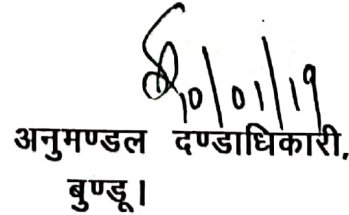 10/01/19
अनुमण्डल दण्डाधिकारी,
बुण्डू।